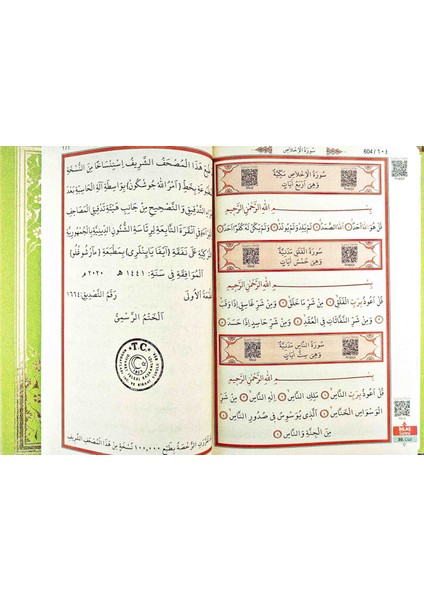 سُورَةُ الْاِخْلَاصِ
604 / ٦٠٤
سُورَةُ الْاِخْلَاصِ مَكِّيَّةٌ
وَهِيَ اَرْبَعُ اٰيَاتٍ
بِسْمِ اللّٰهِ الرَّحْمٰنِ الرَّحِيمِ
قُلْ هُوَ اللّٰهُ اَحَدٌ ۝١ اَللّٰهُ الصَّمَدُ ۝٢ لَمْ يَلِدْ وَلَمْ يُولَدْ ۝٣ وَلَمْ يَكُنْ لَهُ كُفُوًا اَحَدٌ ۝٤
سُورَةُ الْفَلَقِ مَدَنِيَّةٌ
وَهِيَ خَمْسُ اٰيَاتٍ
بِسْمِ اللّٰهِ الرَّحْمٰنِ الرَّحِيمِ
قُلْ اَعُوذُ بِرَبِّ الْفَلَقِ ۝١ مِنْ شَرِّ مَا خَلَقَ ۝٢ وَمِنْ شَرِّ غَاسِقٍ اِذَا وَقَبَ ۝٣
وَمِنْ شَرِّ النَّفَّاثَاتِ فِي الْعُقَدِ ۝٤ وَمِنْ شَرِّ حَاسِدٍ اِذَا حَسَدَ ۝٥
سُورَةُ النَّاسِ مَدَنِيَّةٌ
وَهِيَ سِتُّ اٰيَاتٍ
بِسْمِ اللّٰهِ الرَّحْمٰنِ الرَّحِيمِ
قُلْ اَعُوذُ بِرَبِّ النَّاسِ ۝١ مَلِكِ النَّاسِ ۝٢ اِلٰهِ النَّاسِ ۝٣ مِنْ شَرِّ
الْوَسْوَاسِ الْخَنَّاسِ ۝٤ اَلَّذِي يُوَسْوِسُ فِي صُدُورِ النَّاسِ ۝٥
مِنَ الْجِنَّةِ وَالنَّاسِ ۝٦
30. Cüz
طُبِعَ هٰذَا الْمُصْحَفُ الشَّرِيفُ اِسْتِنْسَاخًا مِنَ النُّسْخَةِ
بِخَطِّ (اَمْرُ اللّٰهِ جُوشْكُونْ) بِوَاسِطَةِ اٰلَةِ الْحَاسِبَةِ بَعْدَ
التَّدْقِيقِ وَالتَّصْحِيحِ مِنْ جَانِبِ هَيْئَةِ تَدْقِيقِ الْمَصَاحِفِ
اَنْقَرَةَ التَّابِعَةِ لِرِئَاسَةِ الشُّئُونِ الدِّينِيَّةِ بِالْجُمْهُورِيَّةِ
عَلَى نَفَقَةِ (اَيْفَا يَايِنْلَرِي) بِمَطْبَعَةِ
الْمُوَافِقَةِ فِي سَنَةِ: ١٤٤١ هـ ٢٠٢٠م
الْاُولٰى رَقَمُ التَّصْدِيقِ: ١٦٦٤
اَلْخَتْمُ الرَّسْمِيُّ
T.C.
الرُّخْصَةُ بِطَبْعِ ١٠٠,٠٠٠ نُسْخَةٍ مِنْ هٰذَا الْمُصْحَفِ الشَّرِيفِ